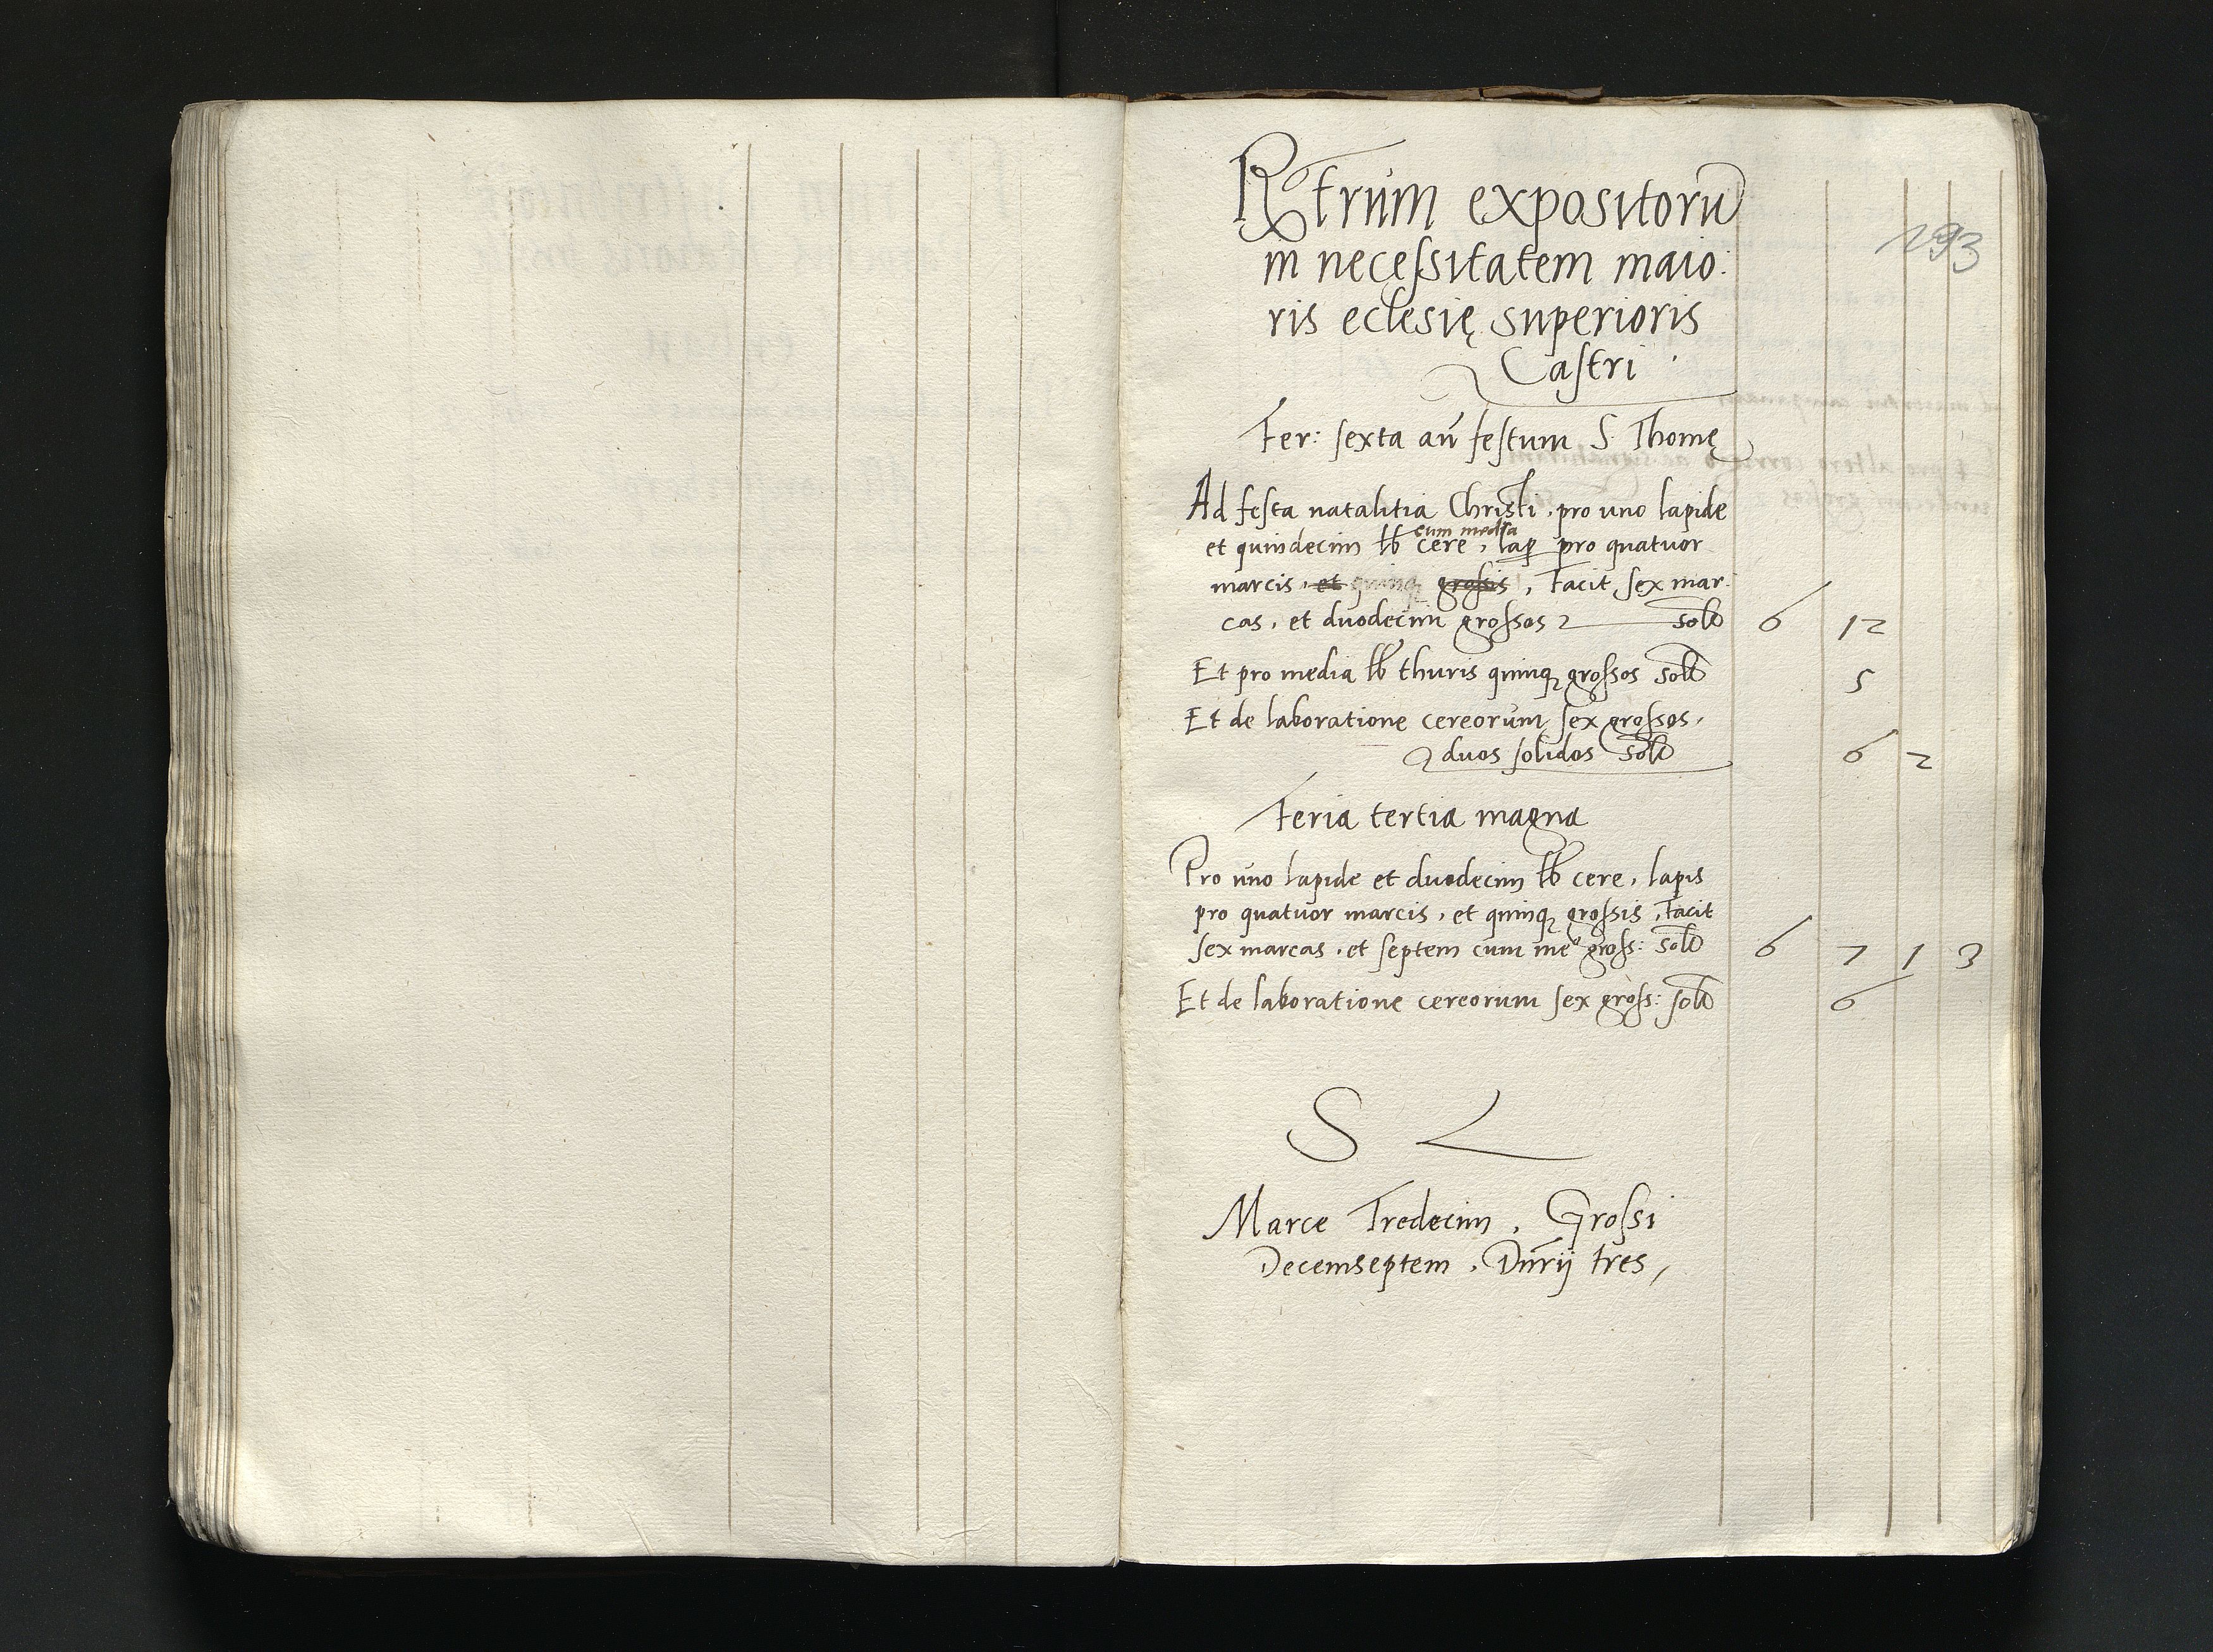 Rtrum expositorũ
193
in necessitatem maio:
ris eclesię superioris
Castri
Fer: sexta añ festum S. Thomę
Ad festa natalitia Christi, pro uno lapide
cum media
et quindecim lb cere, lap pro quatuor
marcis, et quinq grossis, Facit sex mar:
cas, et duodecim grossos solo 6 12
Et pro media lb thuris quinq grossos solo 5
Et de laboratione cereorum sex grossos,
duos solidos solo 6 2
Feria tertia magna
Pro uno lapide et duodecim lb cere, lapis
pro quatuor marcis, et quinq grossis, Facit
sex marcas, et septem cum meo gross: solo 6 7 1 3
Et de laboratione cereorum sex gross: solo 6
S
Marce Tredecim, Grossi
Decemseptem, Dnrij tres,